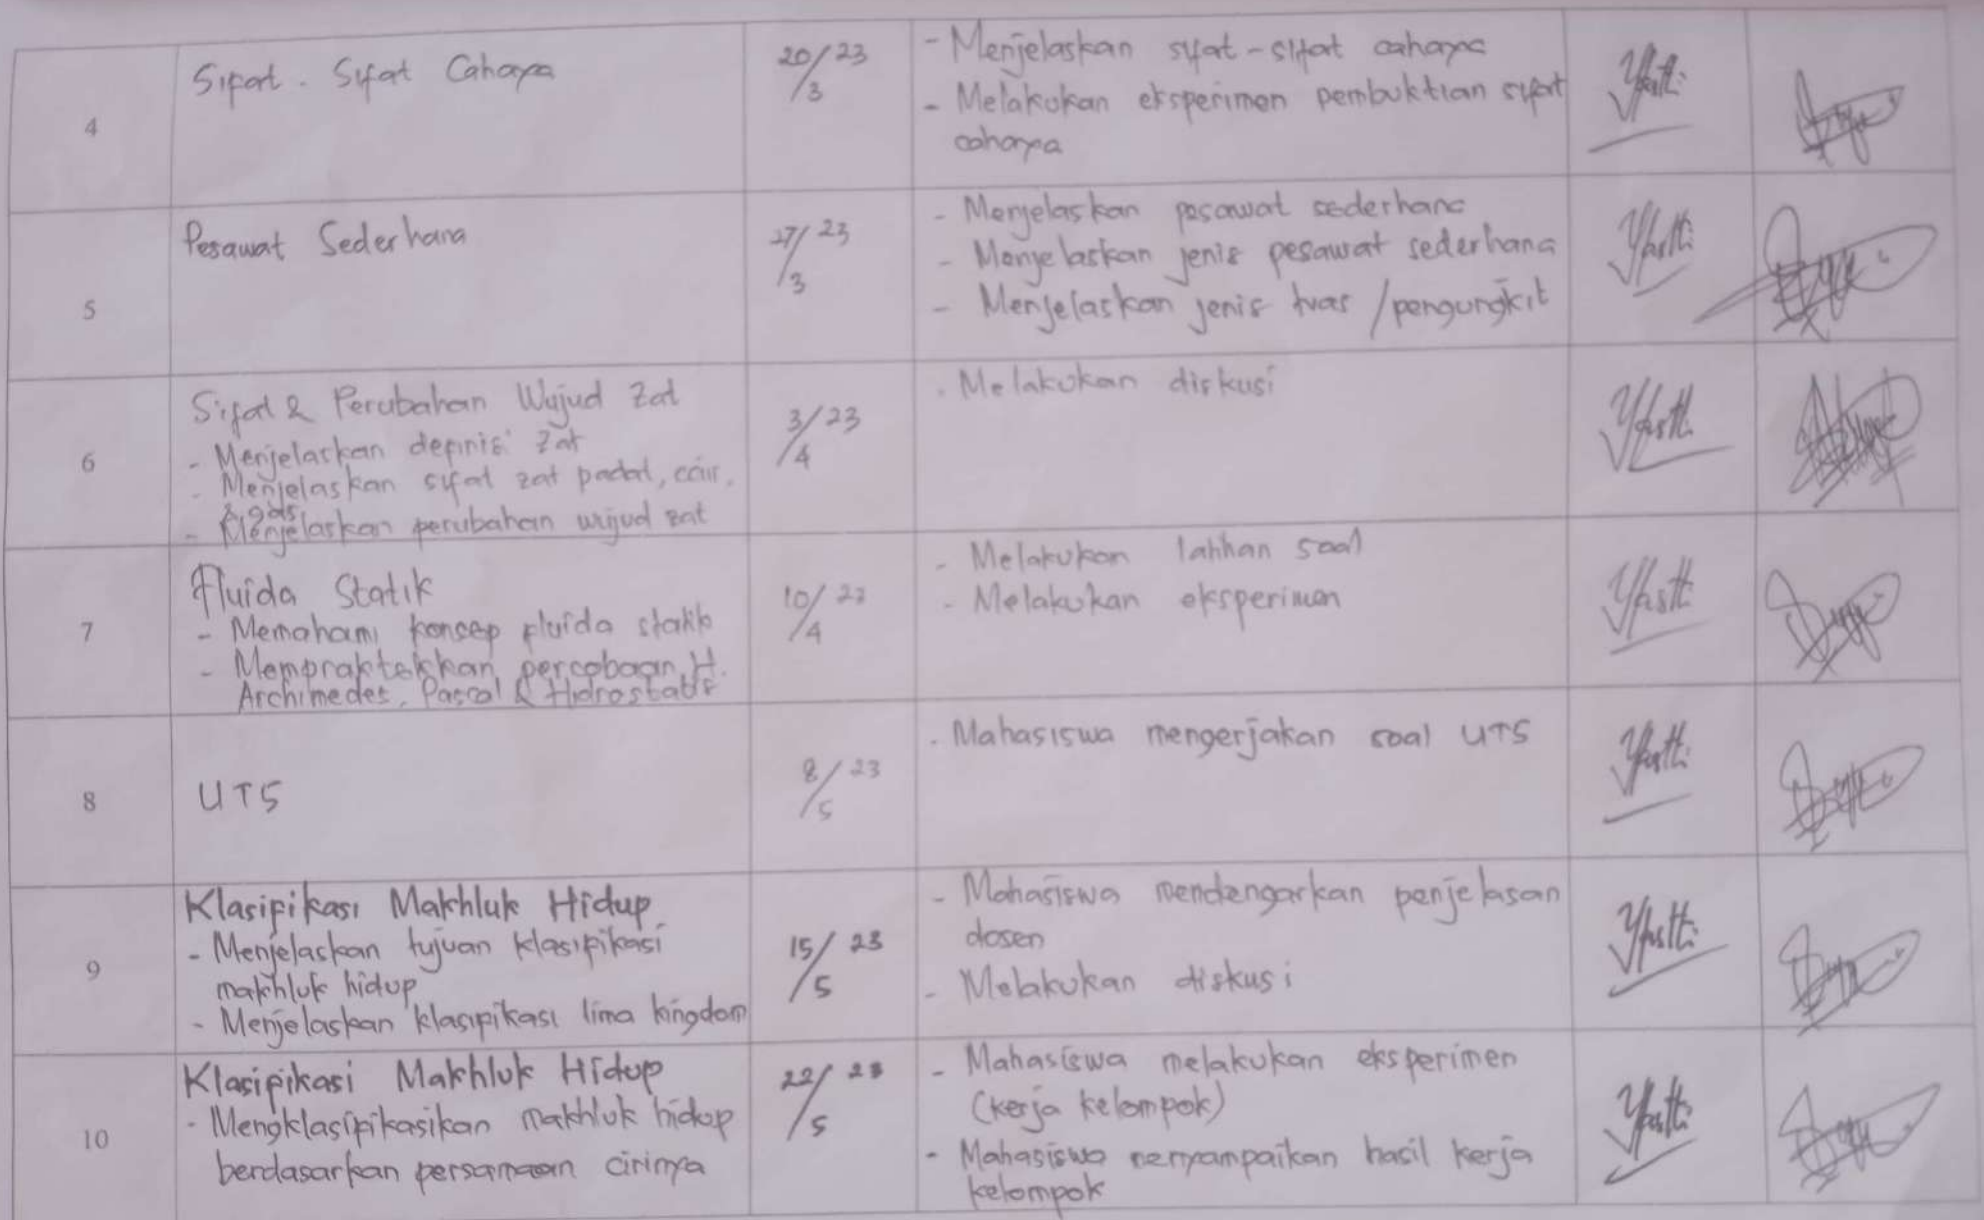 4
Sifat - Sifat Cahaya
20/3 23
- Menjelaskan sifat-sifat cahaya
- Melakukan eksperimen pembuktian sifat
cahaya
5
Pesawat Sederhana
27/3 23
- Menjelaskan pesawat sederhana
- Menjelaskan jenis pesawat sederhana
- Menjelaskan jenis tuas /pengungkit
6
Sifat & Perubahan Wujud Zat
- Menjelaskan depinisi zat
- Menjelaskan sifat zat padat, cair,
& gas
- Menjelaskan perubahan wujud zat
3/4 23
- Melakukan diskusi
7
Fluida Statik
- Memahami konsep fluida statik
- Mempraktekkan percobaan H.
Archimedes, Pascal & Hidrostatis
10/4 23
- Melakukan latihan soal
- Melakukan eksperimen
8
UTS
8/5 23
- Mahasiswa mengerjakan soal UTS
9
Klasipikasi Makhluk Hidup
- Menjelaskan tujuan klasipikasi
makhluk hidup
- Menjelaskan klasipikasi lima kingdom
15/5 23
- Mahasiswa mendengarkan penjelasan
dosen
- Melakukan diskusi
10
Klasipikasi Makhluk Hidup
- Mengklasipikasikan makhluk hidup
berdasarkan persamaan cirinya
22/5 23
- Mahasiswa melakukan eksperimen
(kerja kelompok)
- Mahasiswa menyampaikan hasil kerja
kelompok